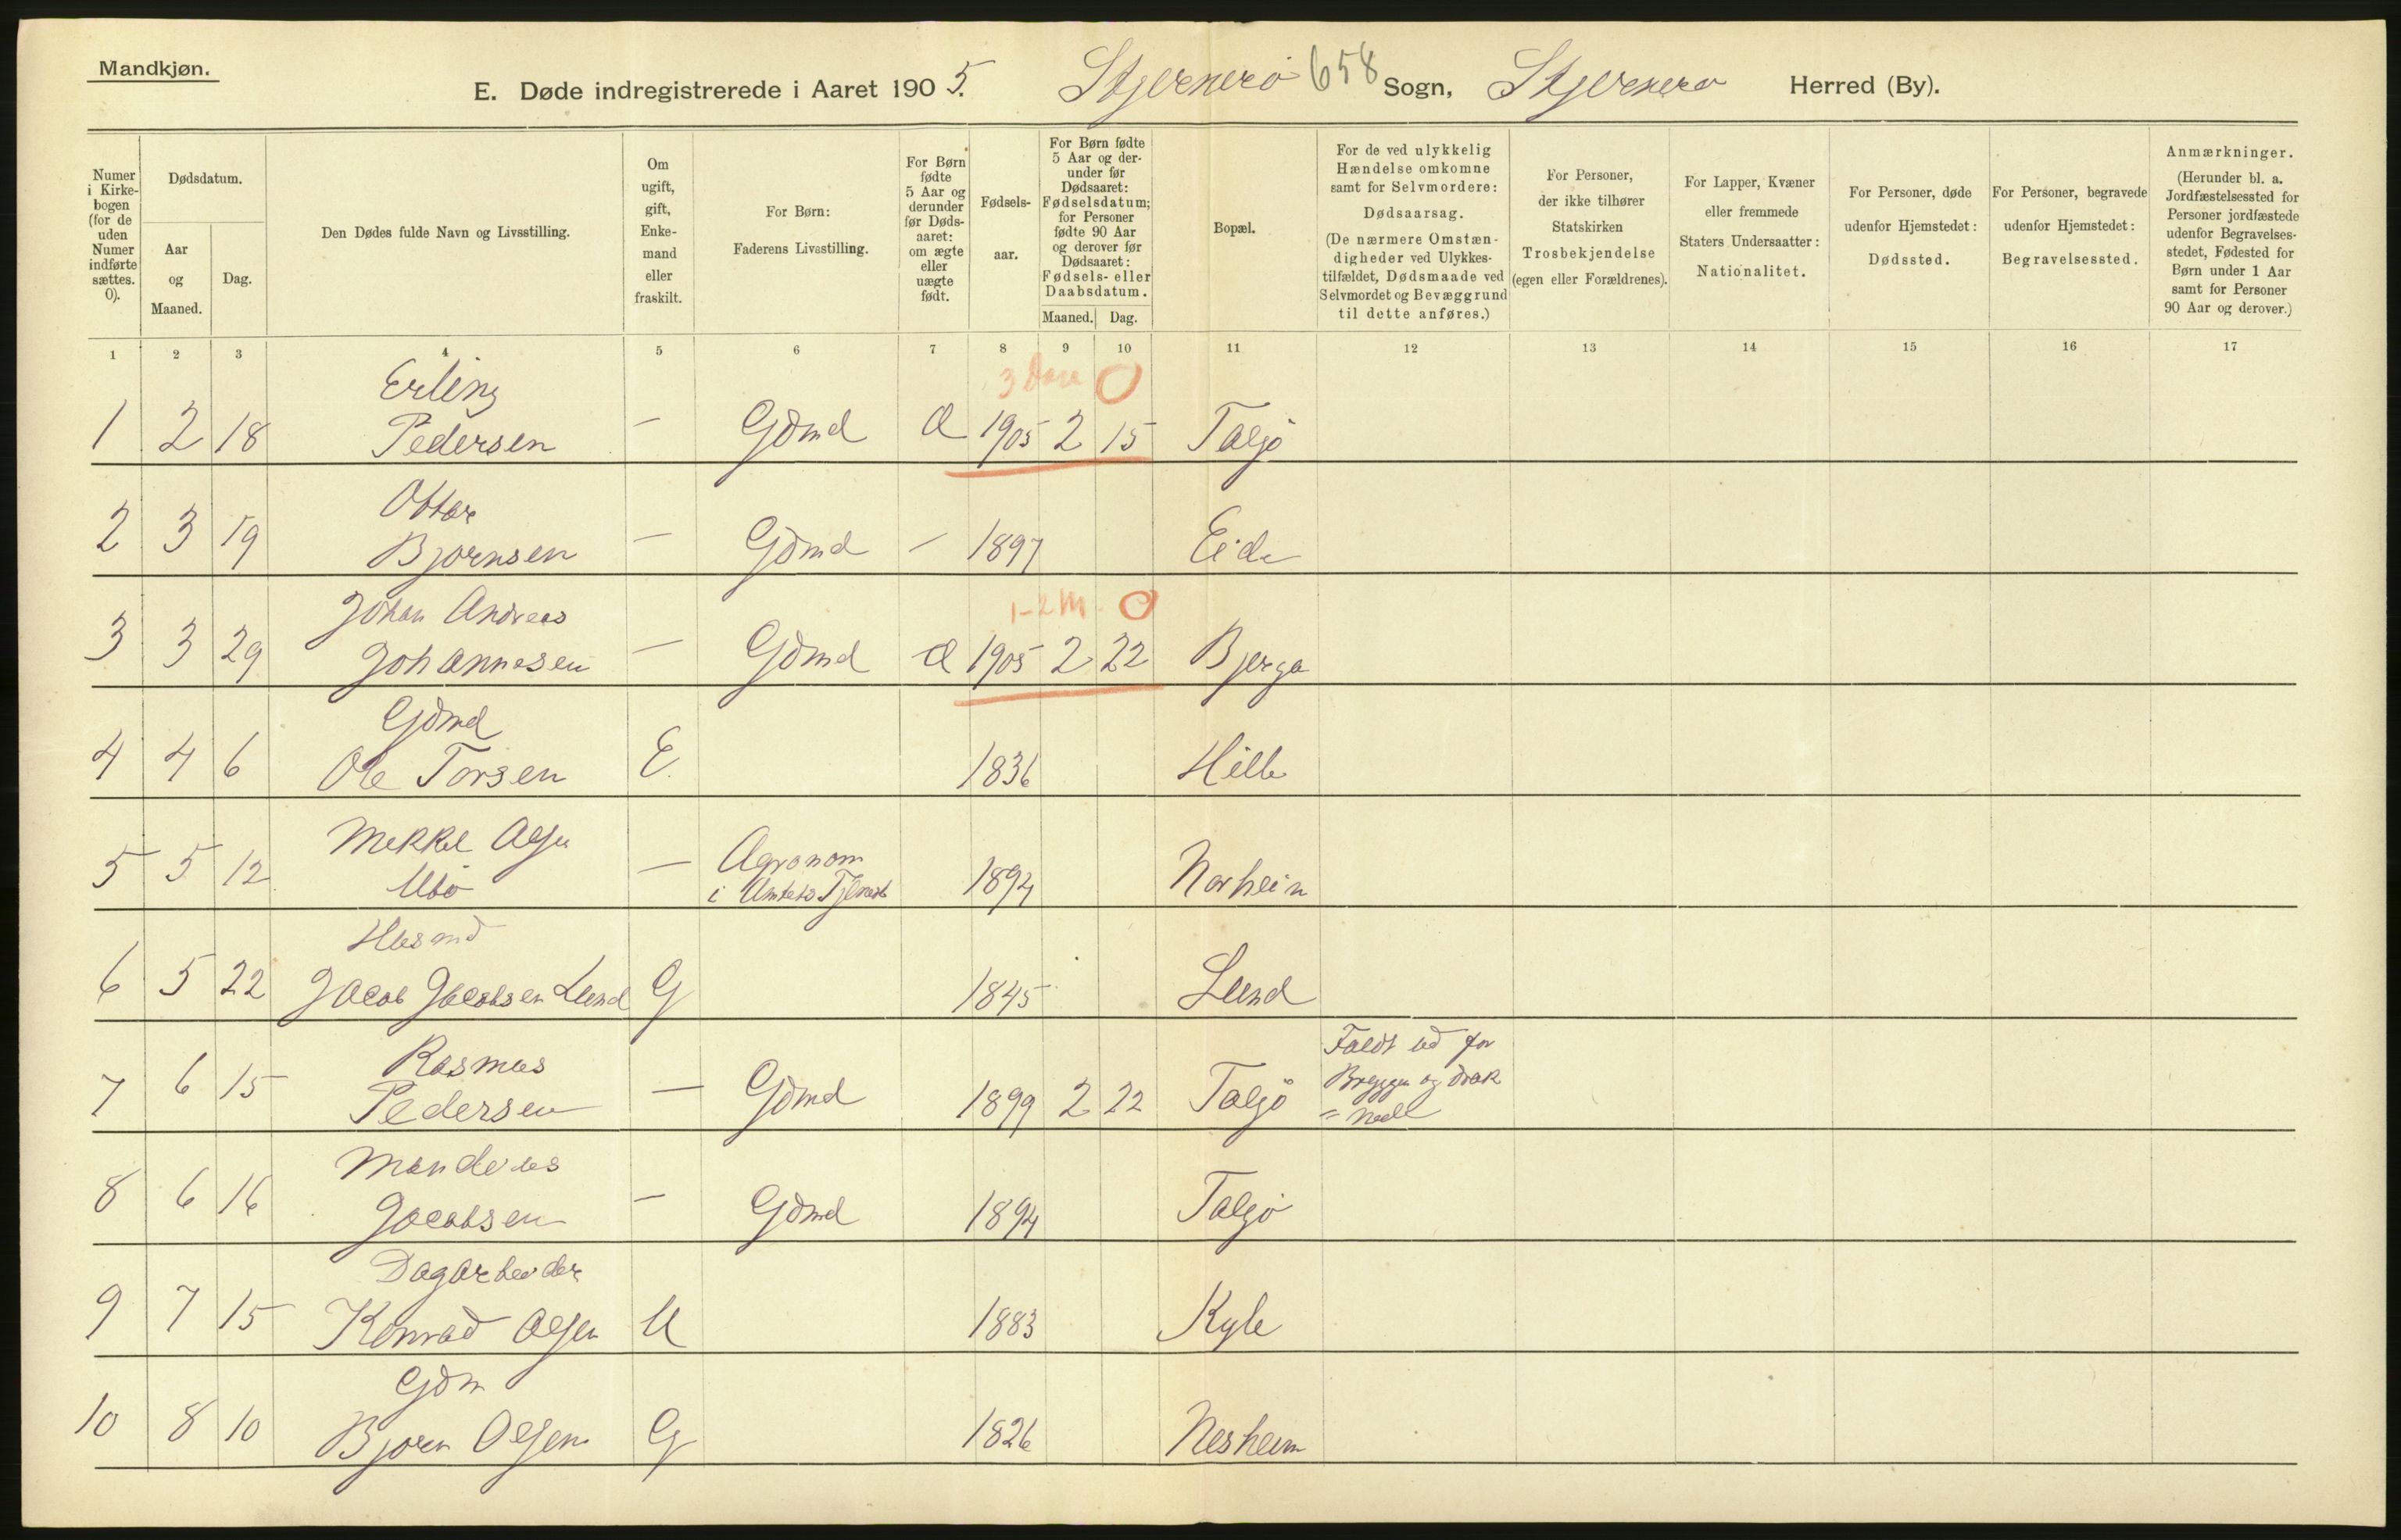 Mandkjøn.
E. Døde indregistrerede i Aaret 1905. Stjernerö 658 Sogn, Stjernerø Herred (By).
Numer i Kirke-bogen (for de uden Numer indførte sættes. 0).
Dødsdatum.
Aar og Maaned.
Dag.
Den Dødes fulde Navn og Livsstilling.
Om ugift, gift, Enke-mand eller fraskilt.
For Børn: Faderens Livsstilling.
For Børn fødte 5 Aar og derunder før Døds-aaret: om ægte eller uægte født.
Fødsels-aar.
For Børn fødte 5 Aar og der-under før Dødsaaret: Fødselsdatum; for Personer fødte 90 Aar og derover før Dødsaaret: Fødsels- eller Daabsdatum.
Maaned. Dag.
Bopæl.
For de ved ulykkelig Hændelse omkomne samt for Selvmordere: Dødsaarsag. (De nærmere Omstæn-digheder ved Ulykkes-tilfældet, Dødsmaade ved Selvmordet og Bevæggrund til dette anføres.)
For Personer, der ikke tilhører Statskirken Trosbekjendelse (egen eller Forældrenes).
For Lapper, Kvæner eller fremmede Staters Undersaatter: Nationalitet.
For Personer, døde udenfor Hjemstedet: Dødssted.
For Personer, begravede udenfor Hjemstedet: Begravelsessted.
Anmærkninger. (Herunder bl. a. Jordfæstelsessted for Personer jordfæstede udenfor Begravelses-stedet, Fødested for Børn under 1 Aar samt for Personer 90 Aar og derover.)
1 2 3 4 5 6 7 8 9 10 11 12 13 14 15 16 17
Erling 3 0
1 2 18 Pedersen – Gdmd 1905 2 15 Talgö
Ottar
2 3 19 Bjornsen – Gdmd – 1897 Eide
Johan Andreas 1-2 M. 0
3 3 29 Johannesen – Gdmd 1905 2 22 Bjerga
Gdmd
4 4 6 Ole Torsen E. 1836 Hille
Mekkel Olsen Agronom
5 5 12 Ubø – i Amtets Tjeneste 1894 Norheim
Husmd
6 5 22 Jacob Jacobsen Lund G 1845 Lund
Rasmus Faldt ud for
7 6 15 Pedersen – Gdmd 1899 2 22 Talgö Bryggen og drak
= nede
Mandeus
8 6 16 Jacobsen – Gdmd 1894 Talgö
Dagarbeider
9 7 15 Konrad Olsen U 1883 Kyle
Gdm
10 8 10 Bjorn Olsen G 1826 Nesheim